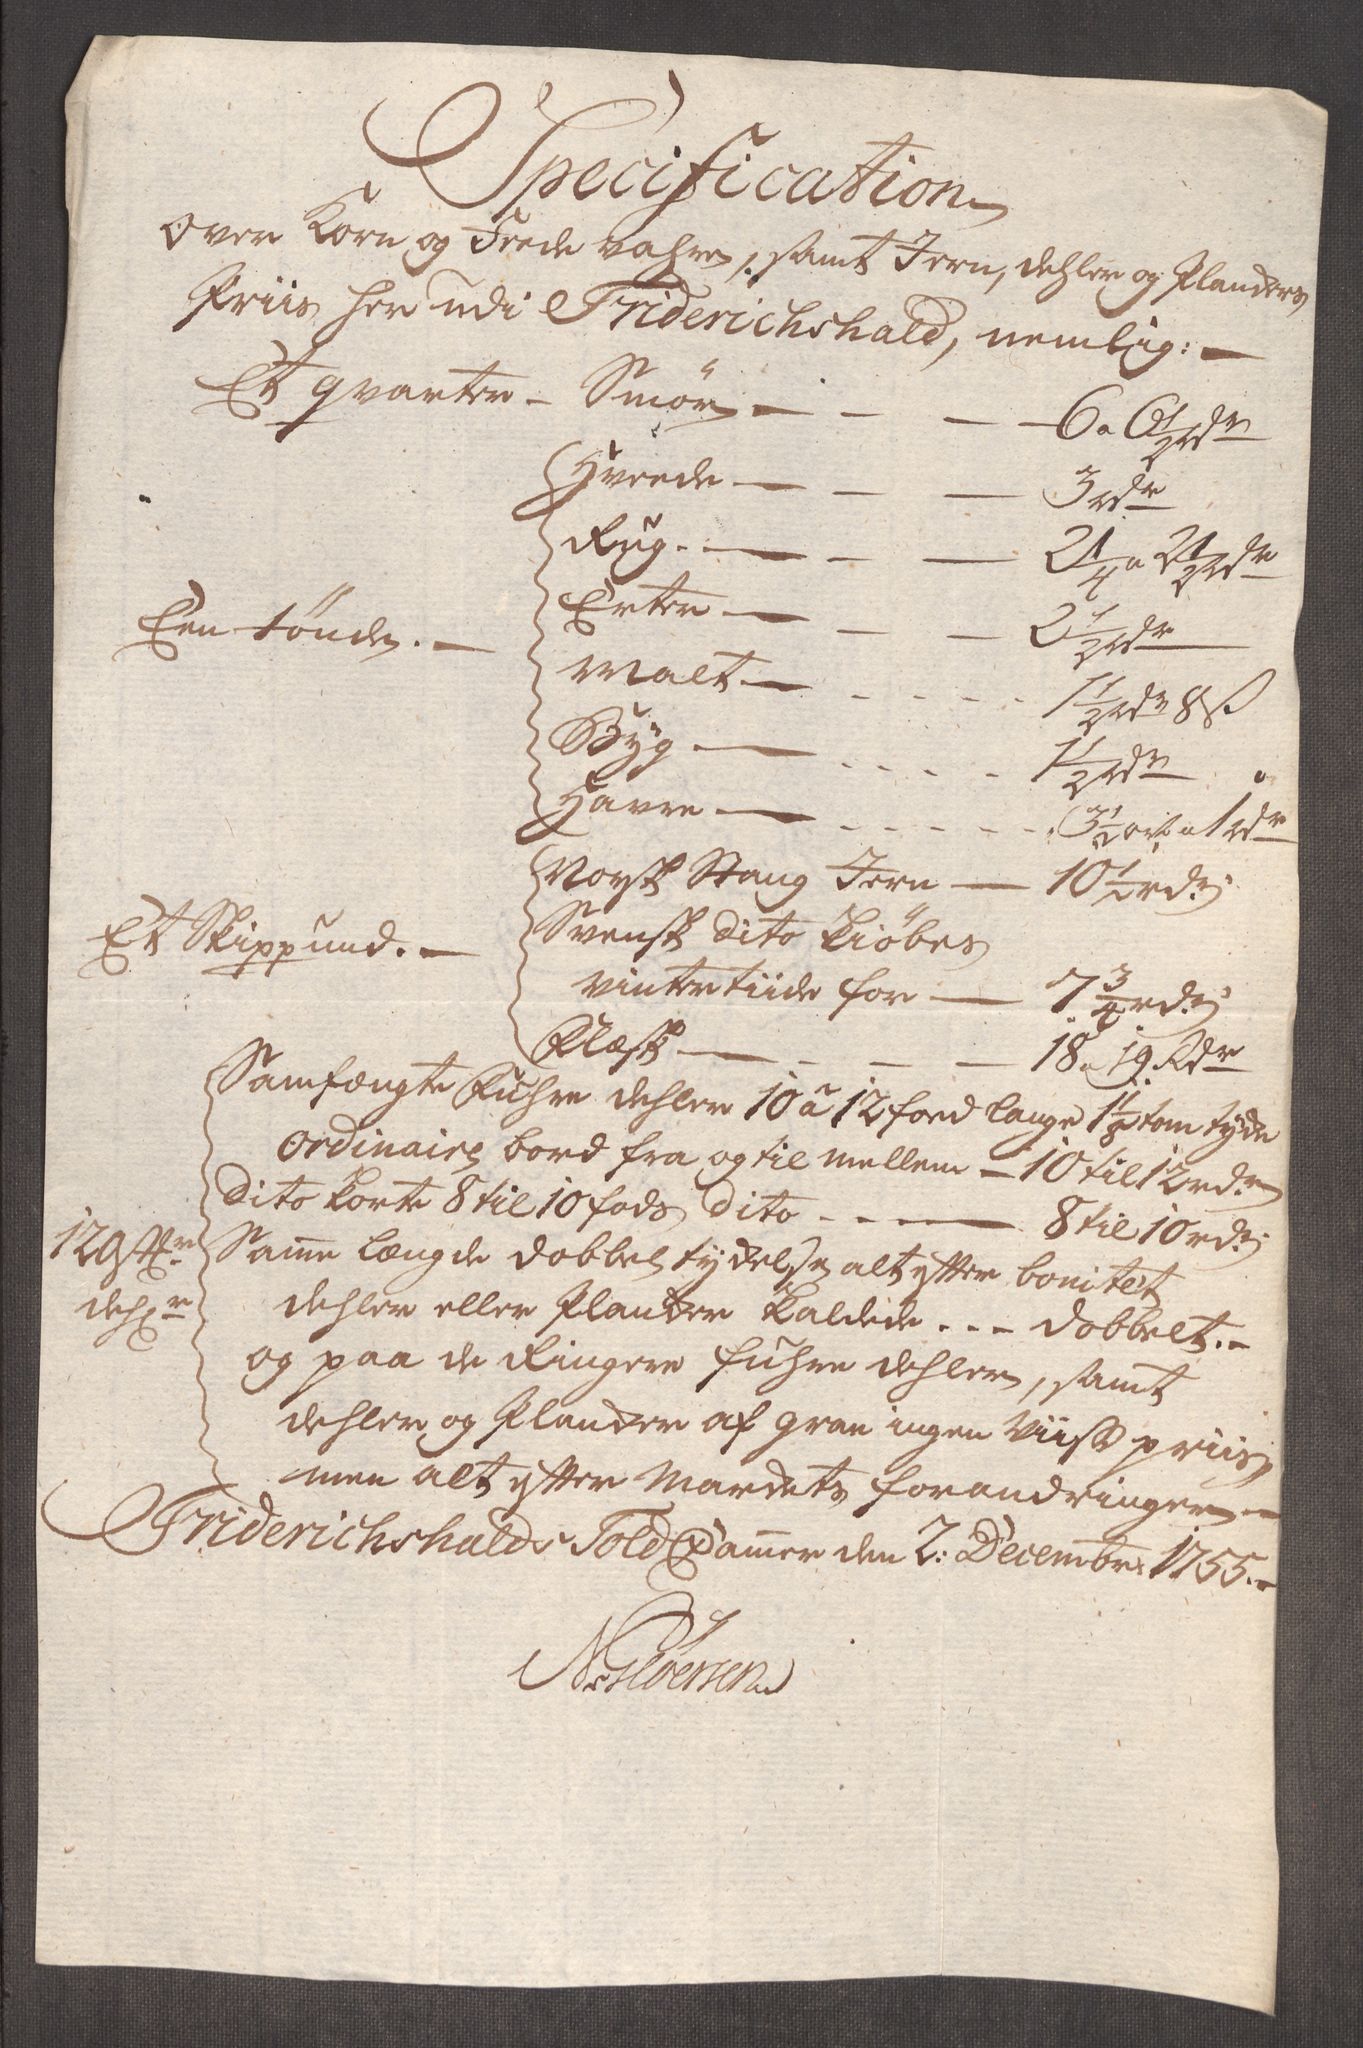 Specification
over Korn og Feede vahre, samt Jern, dehler og Plankers
Priis her udi Friderichshald, nemlig: —
Et qvarter - Smör — — — 6 a 6 1/2 rdr
Hveede — — — 3 rdr
Rug. — — — 2 1/4 a 2 1/2 rdr
Een tönde. — Erter — — — 2 1/2 rdr
Malt — 1 1/2 rdr 8 ß
Byg — 1 1/2 rdr
Havre — 3 1/2 ort a 1 rdr
Norsk Stang Jern — 10 1/2 rdr
Et Skippund. — Svensk dito kiöbes
vintertiide for — 7 3/4 rdr
Flæsk — — — 18 a 19 Rdr
Samfængte Fuhre dehler 10 a 12 foed lange 1 1/8 tom tyde
ordinaire bord fra og til mellem — 10 til 12 rdr
dito korte 8 til 10 fods dito — 8 til 10 rdr
120 Stk: Samme længde dobbel tydelse alt ytter bonitet
dehlr dehler eller Planker kaldede - - - dobbelt. -
og paa de Ringere fuhre dehler, samt
dehler og Planker af gran ingen Viiss priis,
men alt ytter Markets forandringer —
Friderichshalds Told Cammer den 2: Decembr: 1755. -